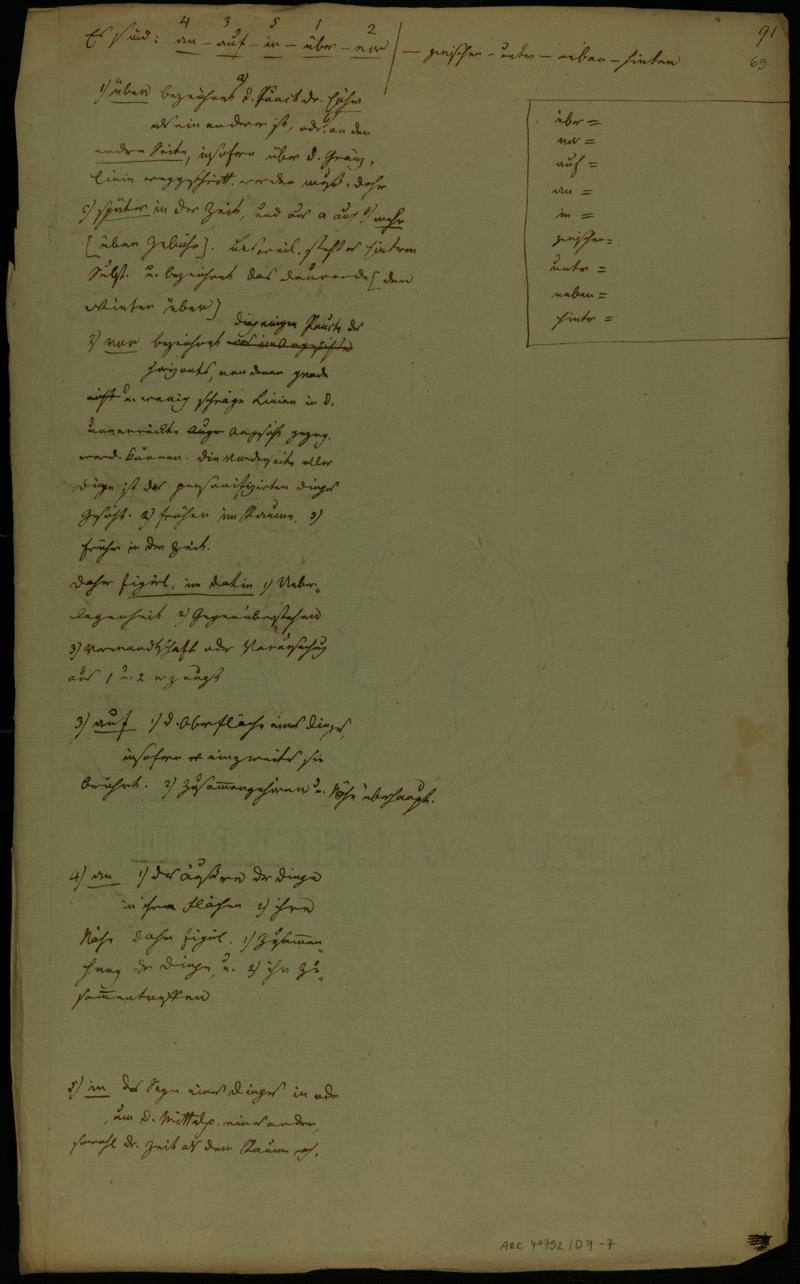 91
69
4 3 5 1 2
Es sind: an – auf – in – über – vor – zwischen – unter – neben – hinten
1) über bezeichnet a) d. Punct der höher
als ein anderer ist, oder b) an der
andern Seite, insofern über d. Gränz-
linie weggeschritt. werden muß, daher
c) später in der Zeit, und aus a auch d) mehr
[über Gebühr]. steht es hinterm
Subst. u. bezeichnet das daurende [den
Winter über]
2) vor bezeichnet diejenigen Puncte des
Horizonts, von denen grade
u. wenig schräge Linien in d.
unverrückte Angesicht gezog.
werd. können. Die Vorderseite aller
Dinge ist des personifizirten Dinges
Gesicht. 2) früher im Raume, 3)
früher in der Zeit.
Daher figürl. im Dativ 1) Ueber-
legenheit 2) Gegenüberstehen
3) Verwandtschaft oder Verursachung
aus 1 u. 2 erzeugt
3) auf 1) d. Oberfläche eines Dinges,
insofern ein zweites sie
berührt. 2) Zusammengehören u. Nähe überhaupt.
4) an 1) das äußere der Dinge
in ihren Flächen 2) ihre
Nähe daher figürl. 1) Zusammen-
hang der Dinge, u. 2) ihr Zu-
sammentreffen
5) in das Seyn eines Dinges in oder
um d. Mittelp. eines andern,
sowohl der Zeit als dem Raume nach.
über =
vor =
auf =
an =
in =
zwischen =
unter =
neben =
hinter =
ARC 4°792 / D9 -7